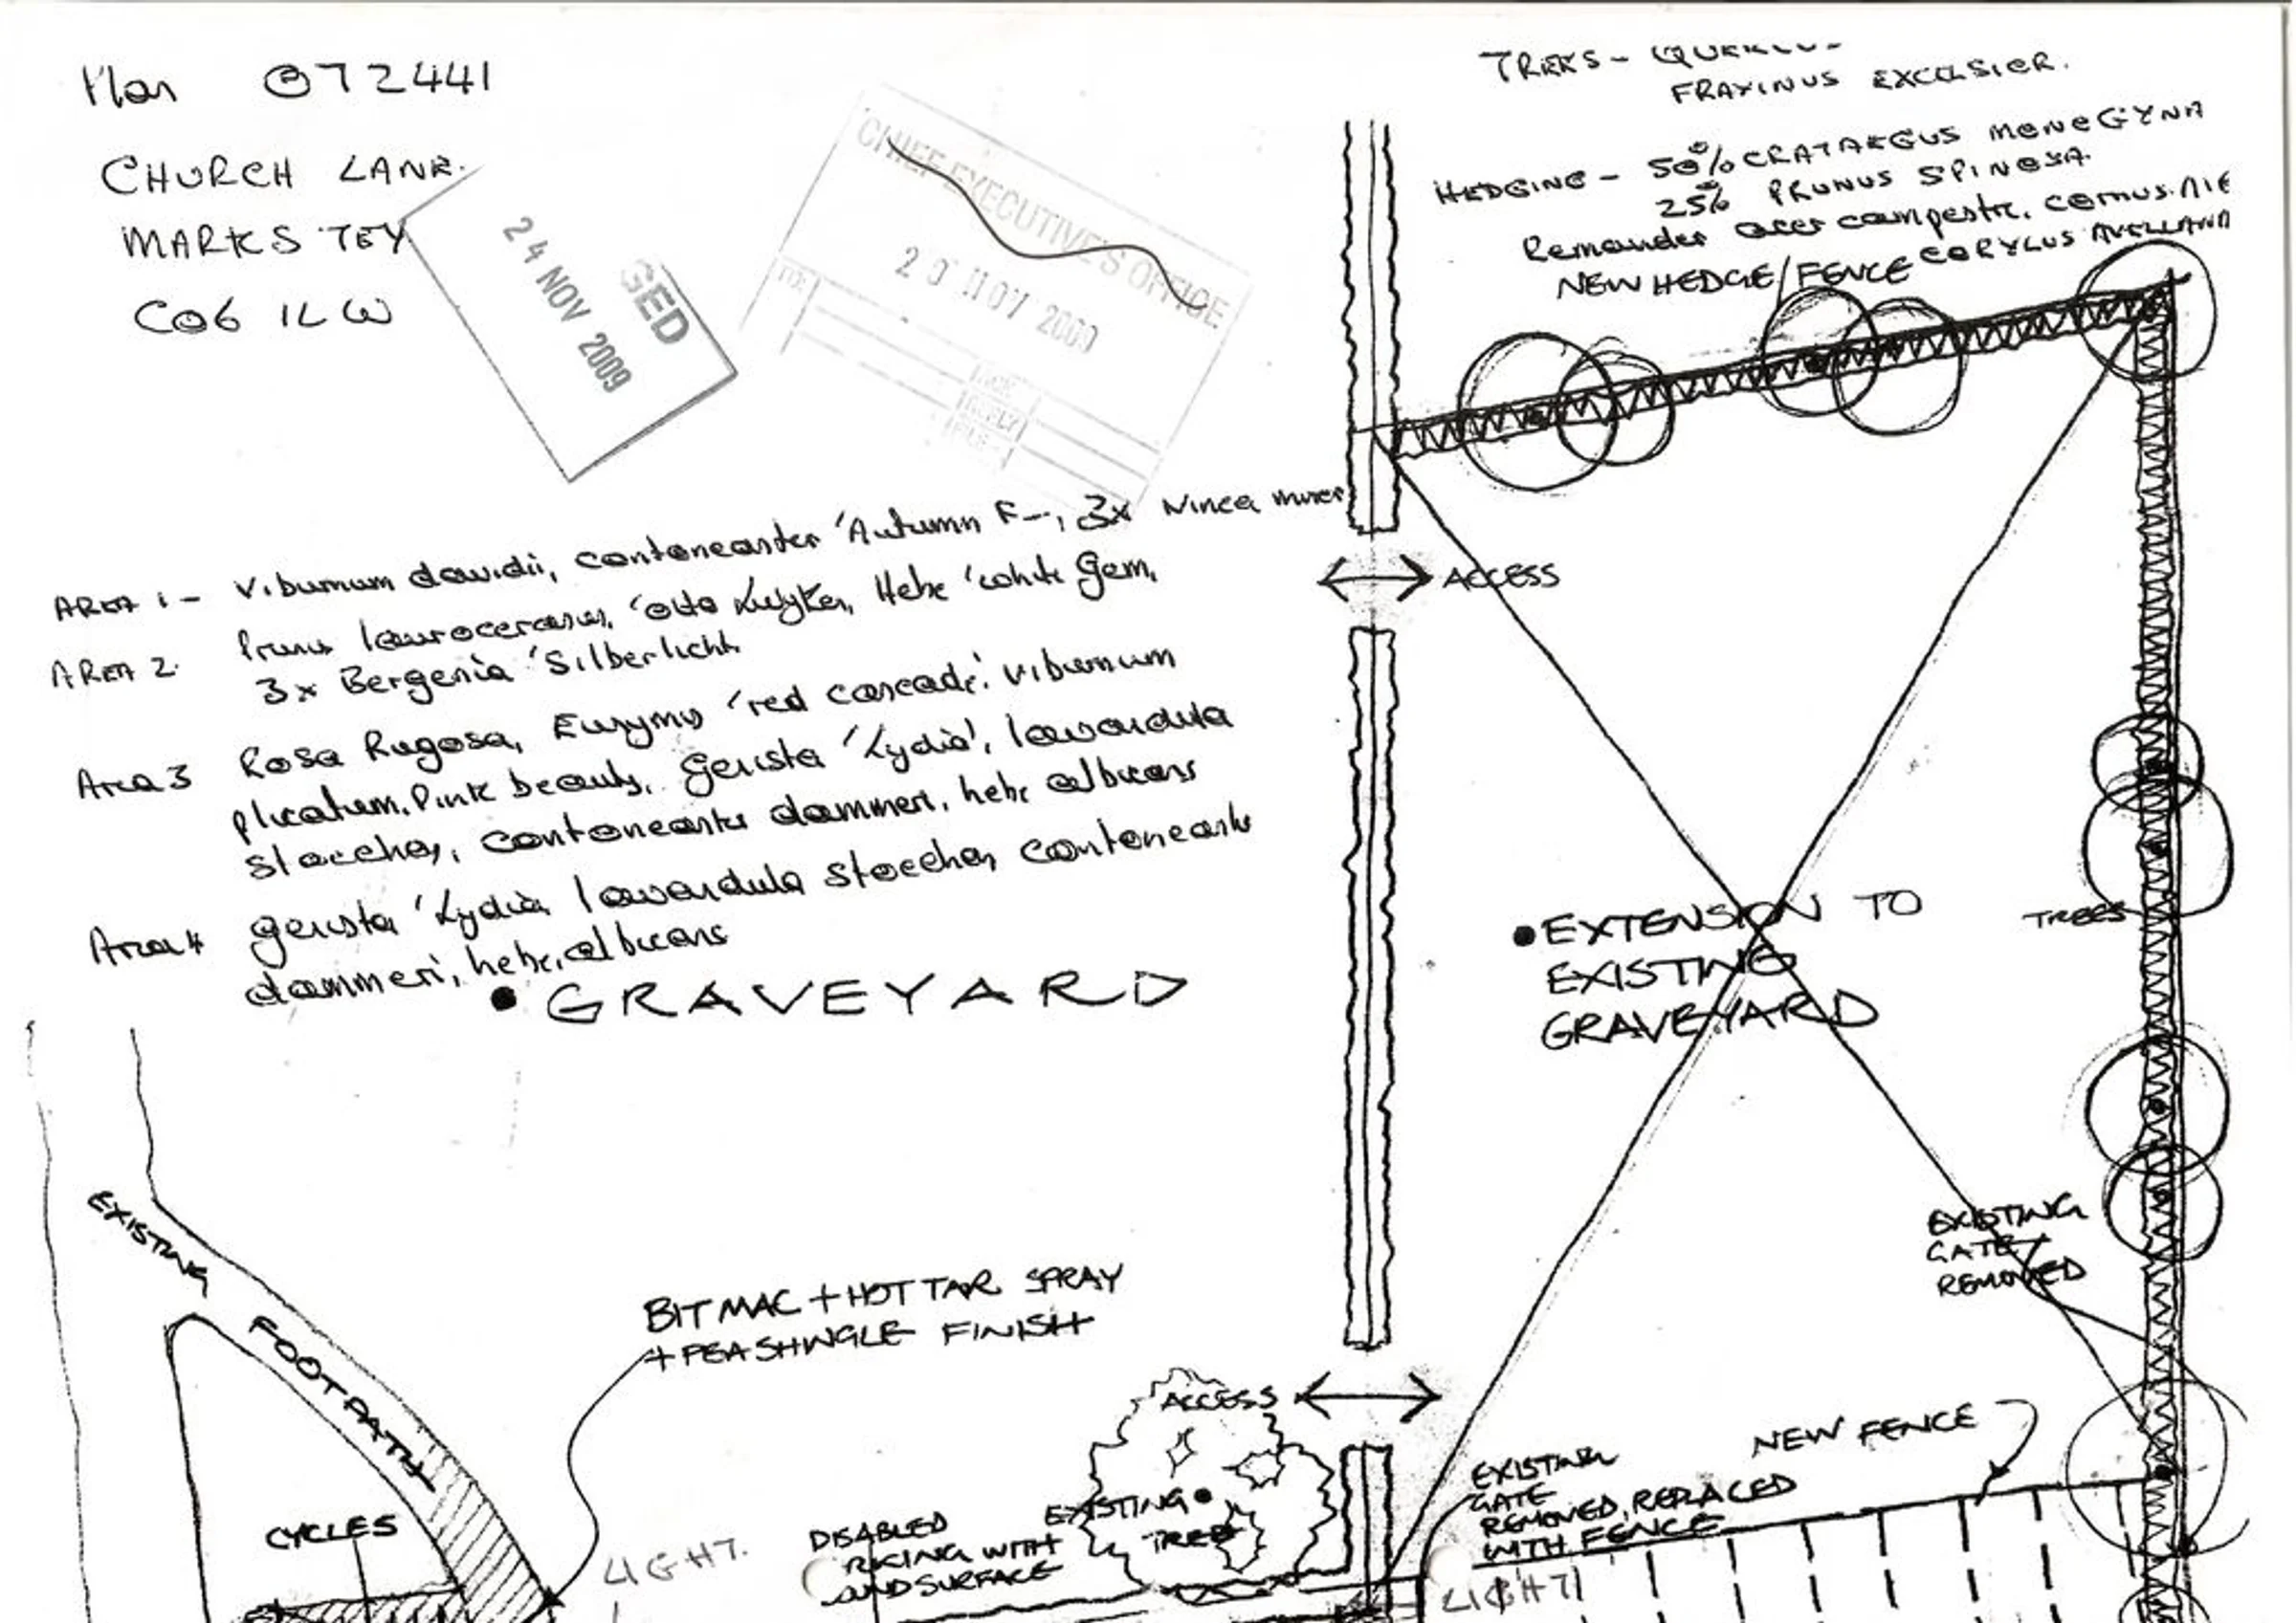 Plan 072441
CHURCH LANE.
MARKS TEY
CO6 1LW
GED
24 NOV 2009
CHIEF EXECUTIVE'S OFFICE
20 NOV 2009
TO:
REPLY
FILE
TREES -
FRAXINUS EXCELSIOR.
HEDGING - 50% CRATAEGUS MONOGYNA
25% PRUNUS SPINOSA.
Remainder acer campestre. cornus.
CORYLUS AVELLANA
NEW HEDGE/FENCE
AREA 1 - Viburnum davidii, contoneaster 'Autumn F--, 3x Vinca minor
AREA 2. Prunus laurocerasus, 'Otto Luyken, Hebe 'white Gem,
3x Bergenia 'Silberlicht
Area 3 Rosa Rugosa, Euonymus 'red cascade'. viburnum
plicatum, Pink beauty, genista 'Lydia', lavandula
stoechas, contoneaster dammeri, hebe albicans
Area 4 genista 'Lydia, lavandula stoechas contoneaster
dammeri, hebe, albicans
GRAVEYARD
ACCESS
EXTENSION TO
EXISTING
GRAVEYARD
TREES
EXISTING
GATE
REMOVED
EXISTING
FOOTPATH
BITMAC + HOT TAR SPRAY
+ PEASHINGLE FINISH
ACCESS
NEW FENCE
EXISTING
TREE
EXISTING
GATE
REMOVED, REPLACED
WITH FENCE
CYCLES
LIGHT.
DISABLED
RKING WITH
UNDSURFACE
LIGHT